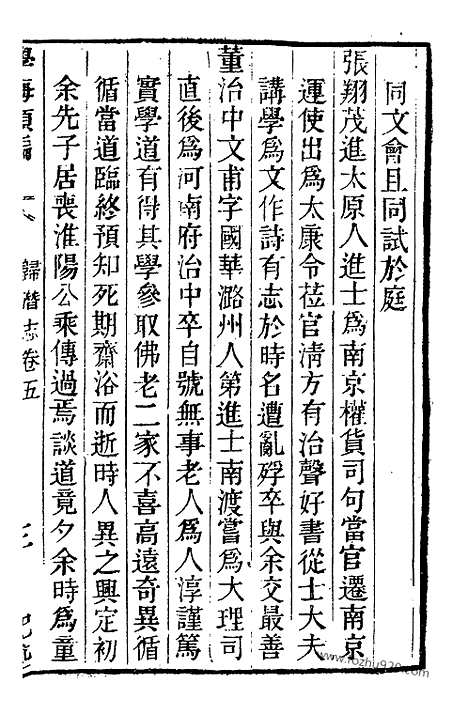 同文會且同試於庭
張翔茂進太原人進士爲南京權貨司句當官遷南京
運使出爲太康令莅官淸方有治聲好書從士大夫
講學爲文作詩有志於時名遭亂殍卒與余交最善
董治中文甫字國華潞州人第進士南渡嘗爲大理司
直後爲河南府治中卒自號無事老人爲人淳謹篤
實學道有得其學參取佛老二家不喜高遠奇異循
循當道臨終預知死期齋浴而逝時人異之興定初
余先子居喪淮陽公乘傳過焉談道竟夕余時爲童
歸潛志卷五
www.rozhy920.com